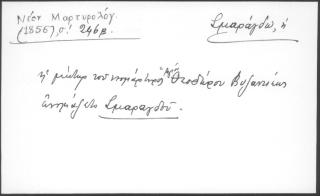 Νέον Μαρτυρολόγ.
(1856), σ. 246β.
Σμαράγδω, ἡ
ἡ μήτηρ τοῦ νεομάρτυρος Ἁγίου Θεοδώρου Βυζαντίου
ὠνομάζετο Σμαραγδοῦ.